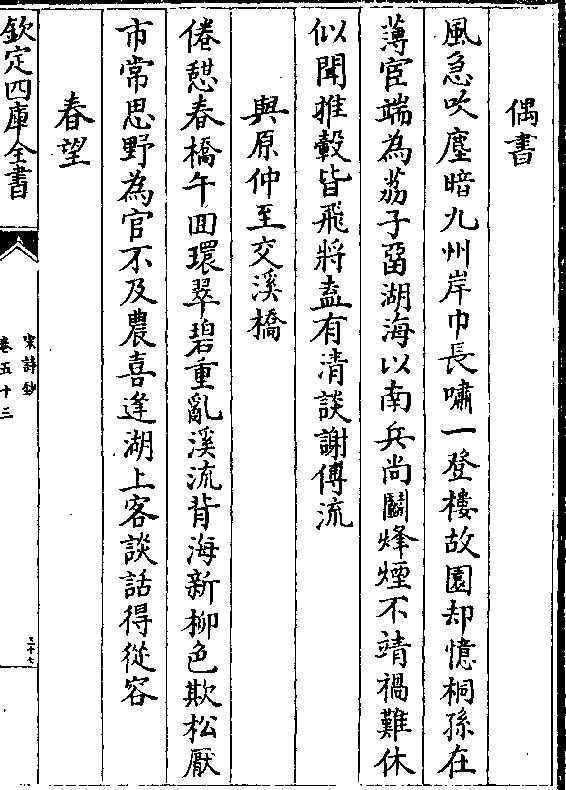 偶書
風急吹塵暗九州岸巾長嘯一登樓故園却憶桐孫在
薄宦端為荔子畱湖海以南兵尚鬭烽煙不靖禍難休
似聞推轂皆飛將盍有清談謝傅流
與原仲至交溪橋
倦憇春橋午囬環翠碧重亂溪流背海新柳色欺松厭
市常思野為官不及農喜逢湖上客談話得從容
春望
欽定四庫全書
宋詩鈔
卷五十三